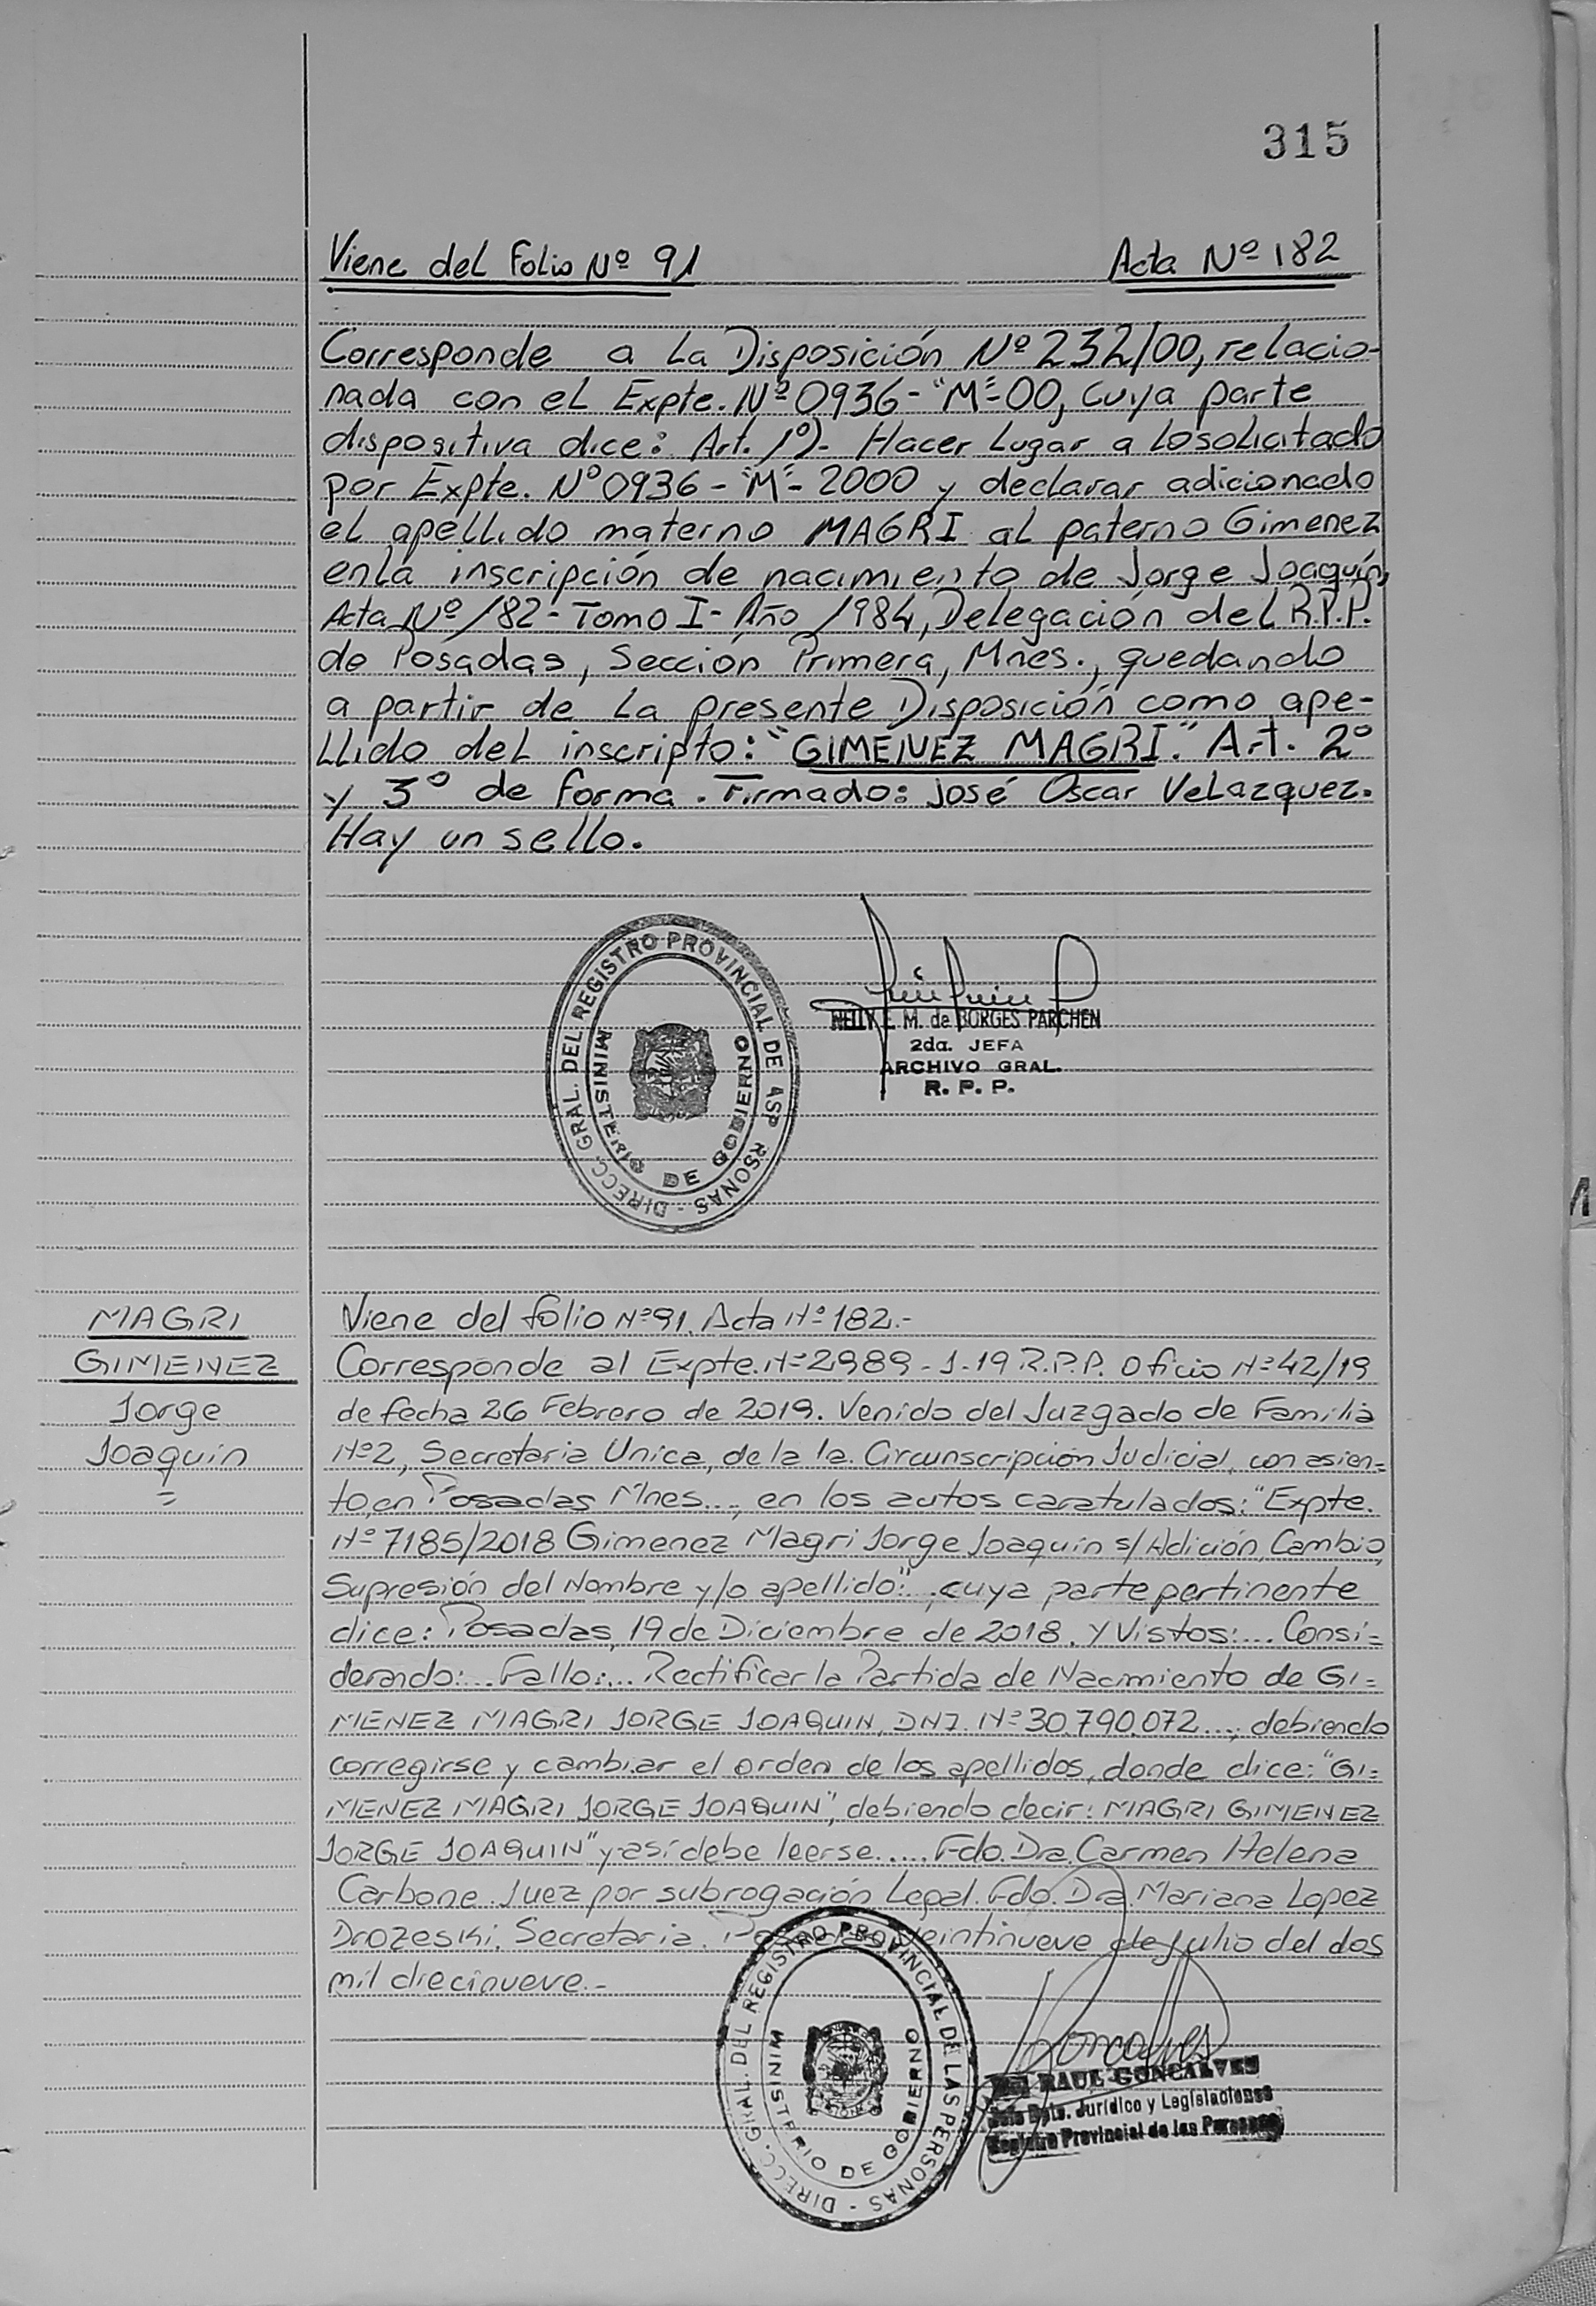 315
Viene del Folio Nº 91 Acta Nº 182
Corresponde a La Disposición Nº 232/00, relacio-
nada con el Expte. Nº 0936-"M"-00, cuya parte
dispositiva dice: Art. 1º)- Hacer Lugar a lo solicitado
por Expte. Nº 0936-"M"- 2000 y declarar adicionado
el apellido materno MAGRI al paterno Gimenez
en la inscripción de nacimiento de Jorge Joaquín,
Acta Nº 182 - Tomo I - Año 1984, Delegación del R.P.P.
de Posadas, Sección Primera, Mnes., quedando
a partir de La presente Disposición como ape-
llido del inscripto: "GIMENEZ MAGRI." Art. 2º
y 3º de forma. Firmado: José Oscar Velazquez.
Hay un sello.
DIRECC. GRAL. DEL REGISTRO PROVINCIAL DE ASP RSONAS -
MINISTERIO DE GOBIERNO
NELLY E. M. de BORGES PARCHEN
2da. JEFA
ARCHIVO GRAL.
R. P. P.
MAGRI
GIMENEZ
Jorge
Joaquin
=
Viene del folio Nº 91. Acta Nº 182.-
Corresponde al Expte. Nº 2989-J-19 R.P.P. Oficio Nº 42/19
de fecha 26 Febrero de 2019. Venido del Juzgado de Familia
Nº 2, Secretaria Unica, de la 1a. Circunscripción Judicial, con asien=
to, en Posadas Mnes..., en los autos caratulados: "Expte.
Nº 7185/2018 Gimenez Magri Jorge Joaquin s/ Adición, Cambio,
Supresión del Nombre y/o apellido:", cuya parte pertinente
dice: Posadas, 19 de Diciembre de 2018. Y Vistos:... Consi=
derando:... Fallo:... Rectificar la Partida de Nacimiento de GI=
MENEZ MAGRI JORGE JOAQUIN, DNJ. Nº 30.790.072..., debiendo
corregirse y cambiar el orden de los apellidos, donde dice: "GI=
MENEZ MAGRI JORGE JOAQUIN", debiendo decir: MAGRI GIMENEZ
JORGE JOAQUIN" y así debe leerse..... Fdo. Dra. Carmen Helena
Carbone. Juez por subrogación Legal. Fdo. Dra. Mariana Lopez
Drozeski. Secretaria. Posadas, veintinueve de Julio del dos
mil diecinueve.-
DIRECC. GRAL. DEL REGISTRO PROVINCIAL DE LAS PERSONAS -
MINISTERIO DE GOBIERNO
Goncalves
RAUL GONCALVES
Jefe Dpto. Jurídico y Legislaciones
Registro Provincial de las Personas